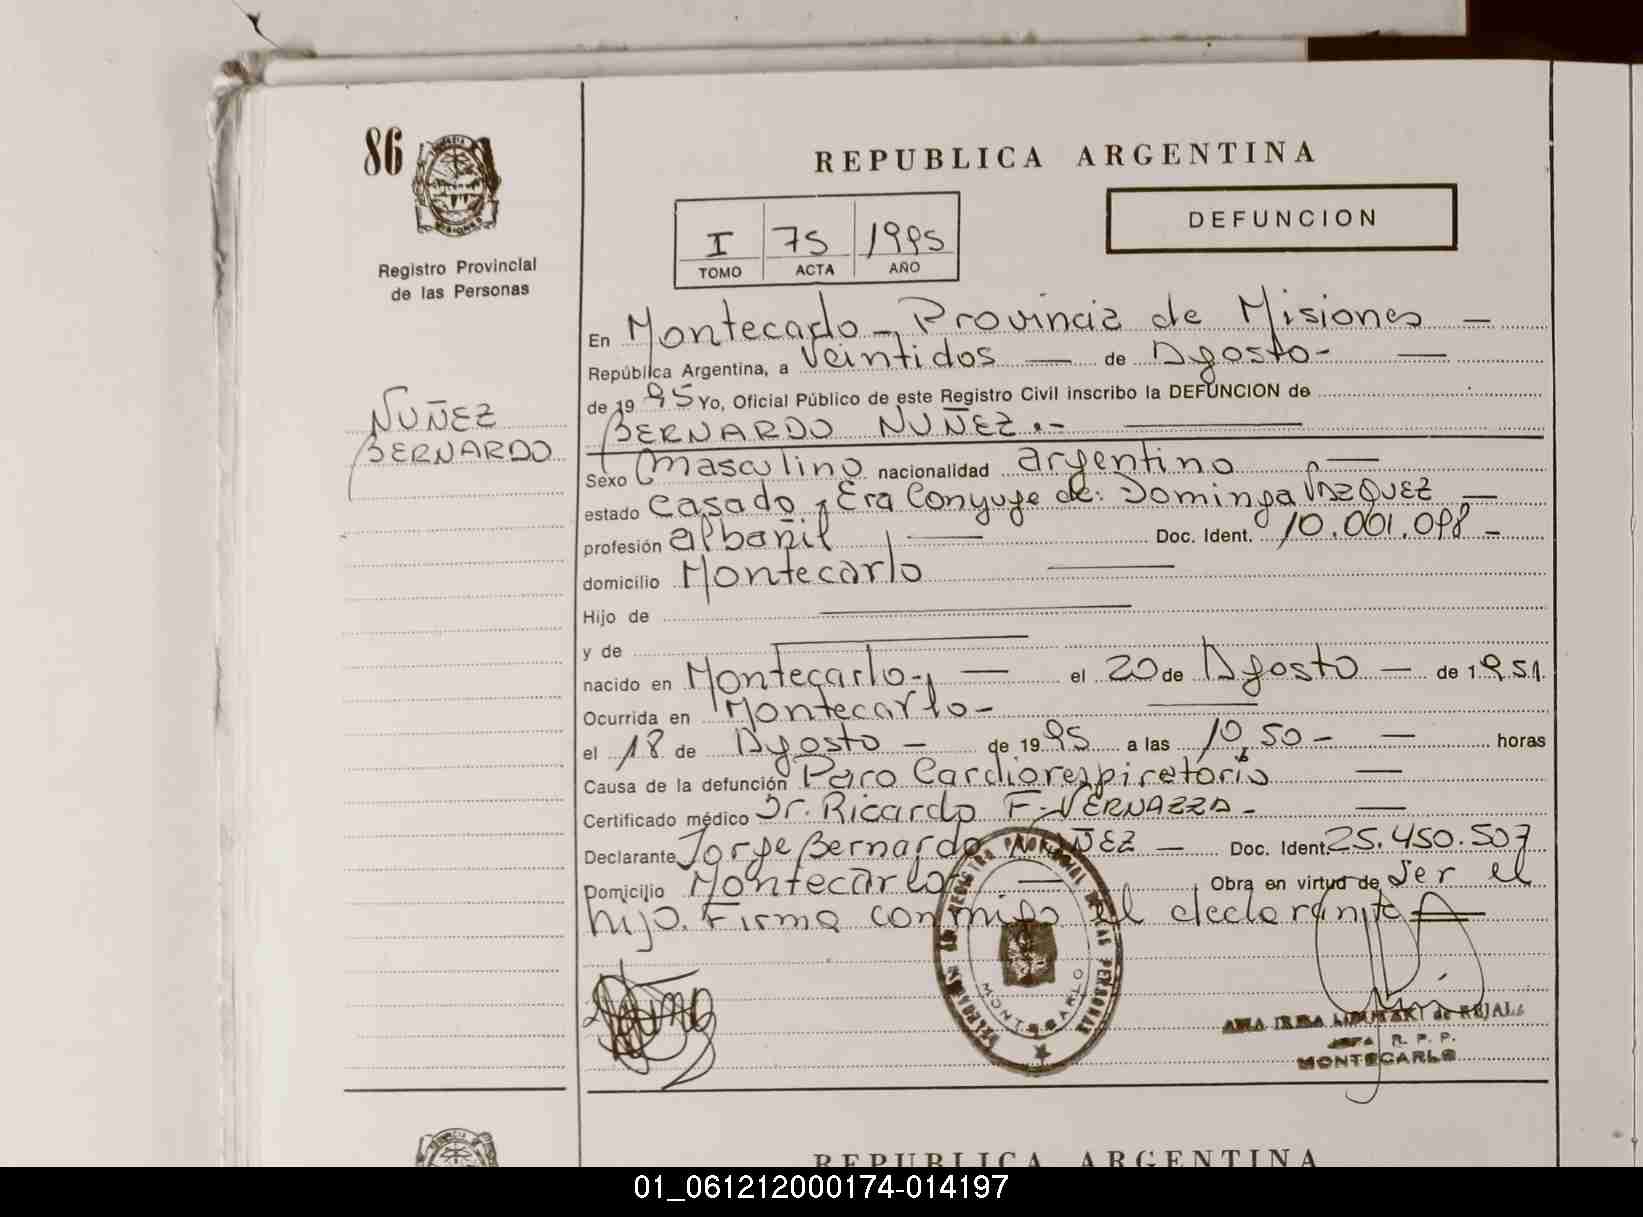 86
Registro Provincial
de las Personas
NUÑEZ
BERNARDO
REPUBLICA ARGENTINA
I 75 1995
TOMO ACTA AÑO
DEFUNCION
En Montecarlo - Provincia de Misiones —
República Argentina, a Veintidos — de Agosto - —
de 1995 Yo, Oficial Público de este Registro Civil inscribo la DEFUNCION de
BERNARDO NUÑEZ.- —
Sexo masculino nacionalidad argentino —
estado casado, Era Conyuge de: Dominga VAZQUEZ —
profesión albañil — Doc. Ident. 10.001.098 -
domicilio Montecarlo —
Hijo de —
y de —
nacido en Montecarlo-, — el 20 de Agosto — de 1951.
Ocurrida en Montecarlo- —
el 18 de Agosto — de 1995 a las 10,50 - — horas
Causa de la defunción Paro Cardiorespiratorio —
Certificado médico Dr. Ricardo F. VERNAZZA - —
Declarante Jorge Bernardo NUÑEZ — Doc. Ident. 25.450.507
Domicilio Montecarlo — Obra en virtud de Ser el
hijo. Firma conmigo el declarante
REGISTRO PROVINCIAL DE LAS PERSONAS
MONTECARLO
ANA IRMA de REJALA
JEFA R. P. P.
MONTECARLO
REPUBLICA ARGENTINA
01_061212000174-014197